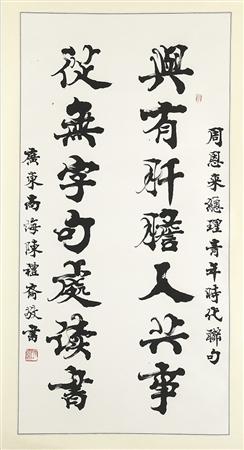 周恩来總理青年時代聯句
與有肝膽人共事
從無字句處读書
廣東南海陳禮齋敬書